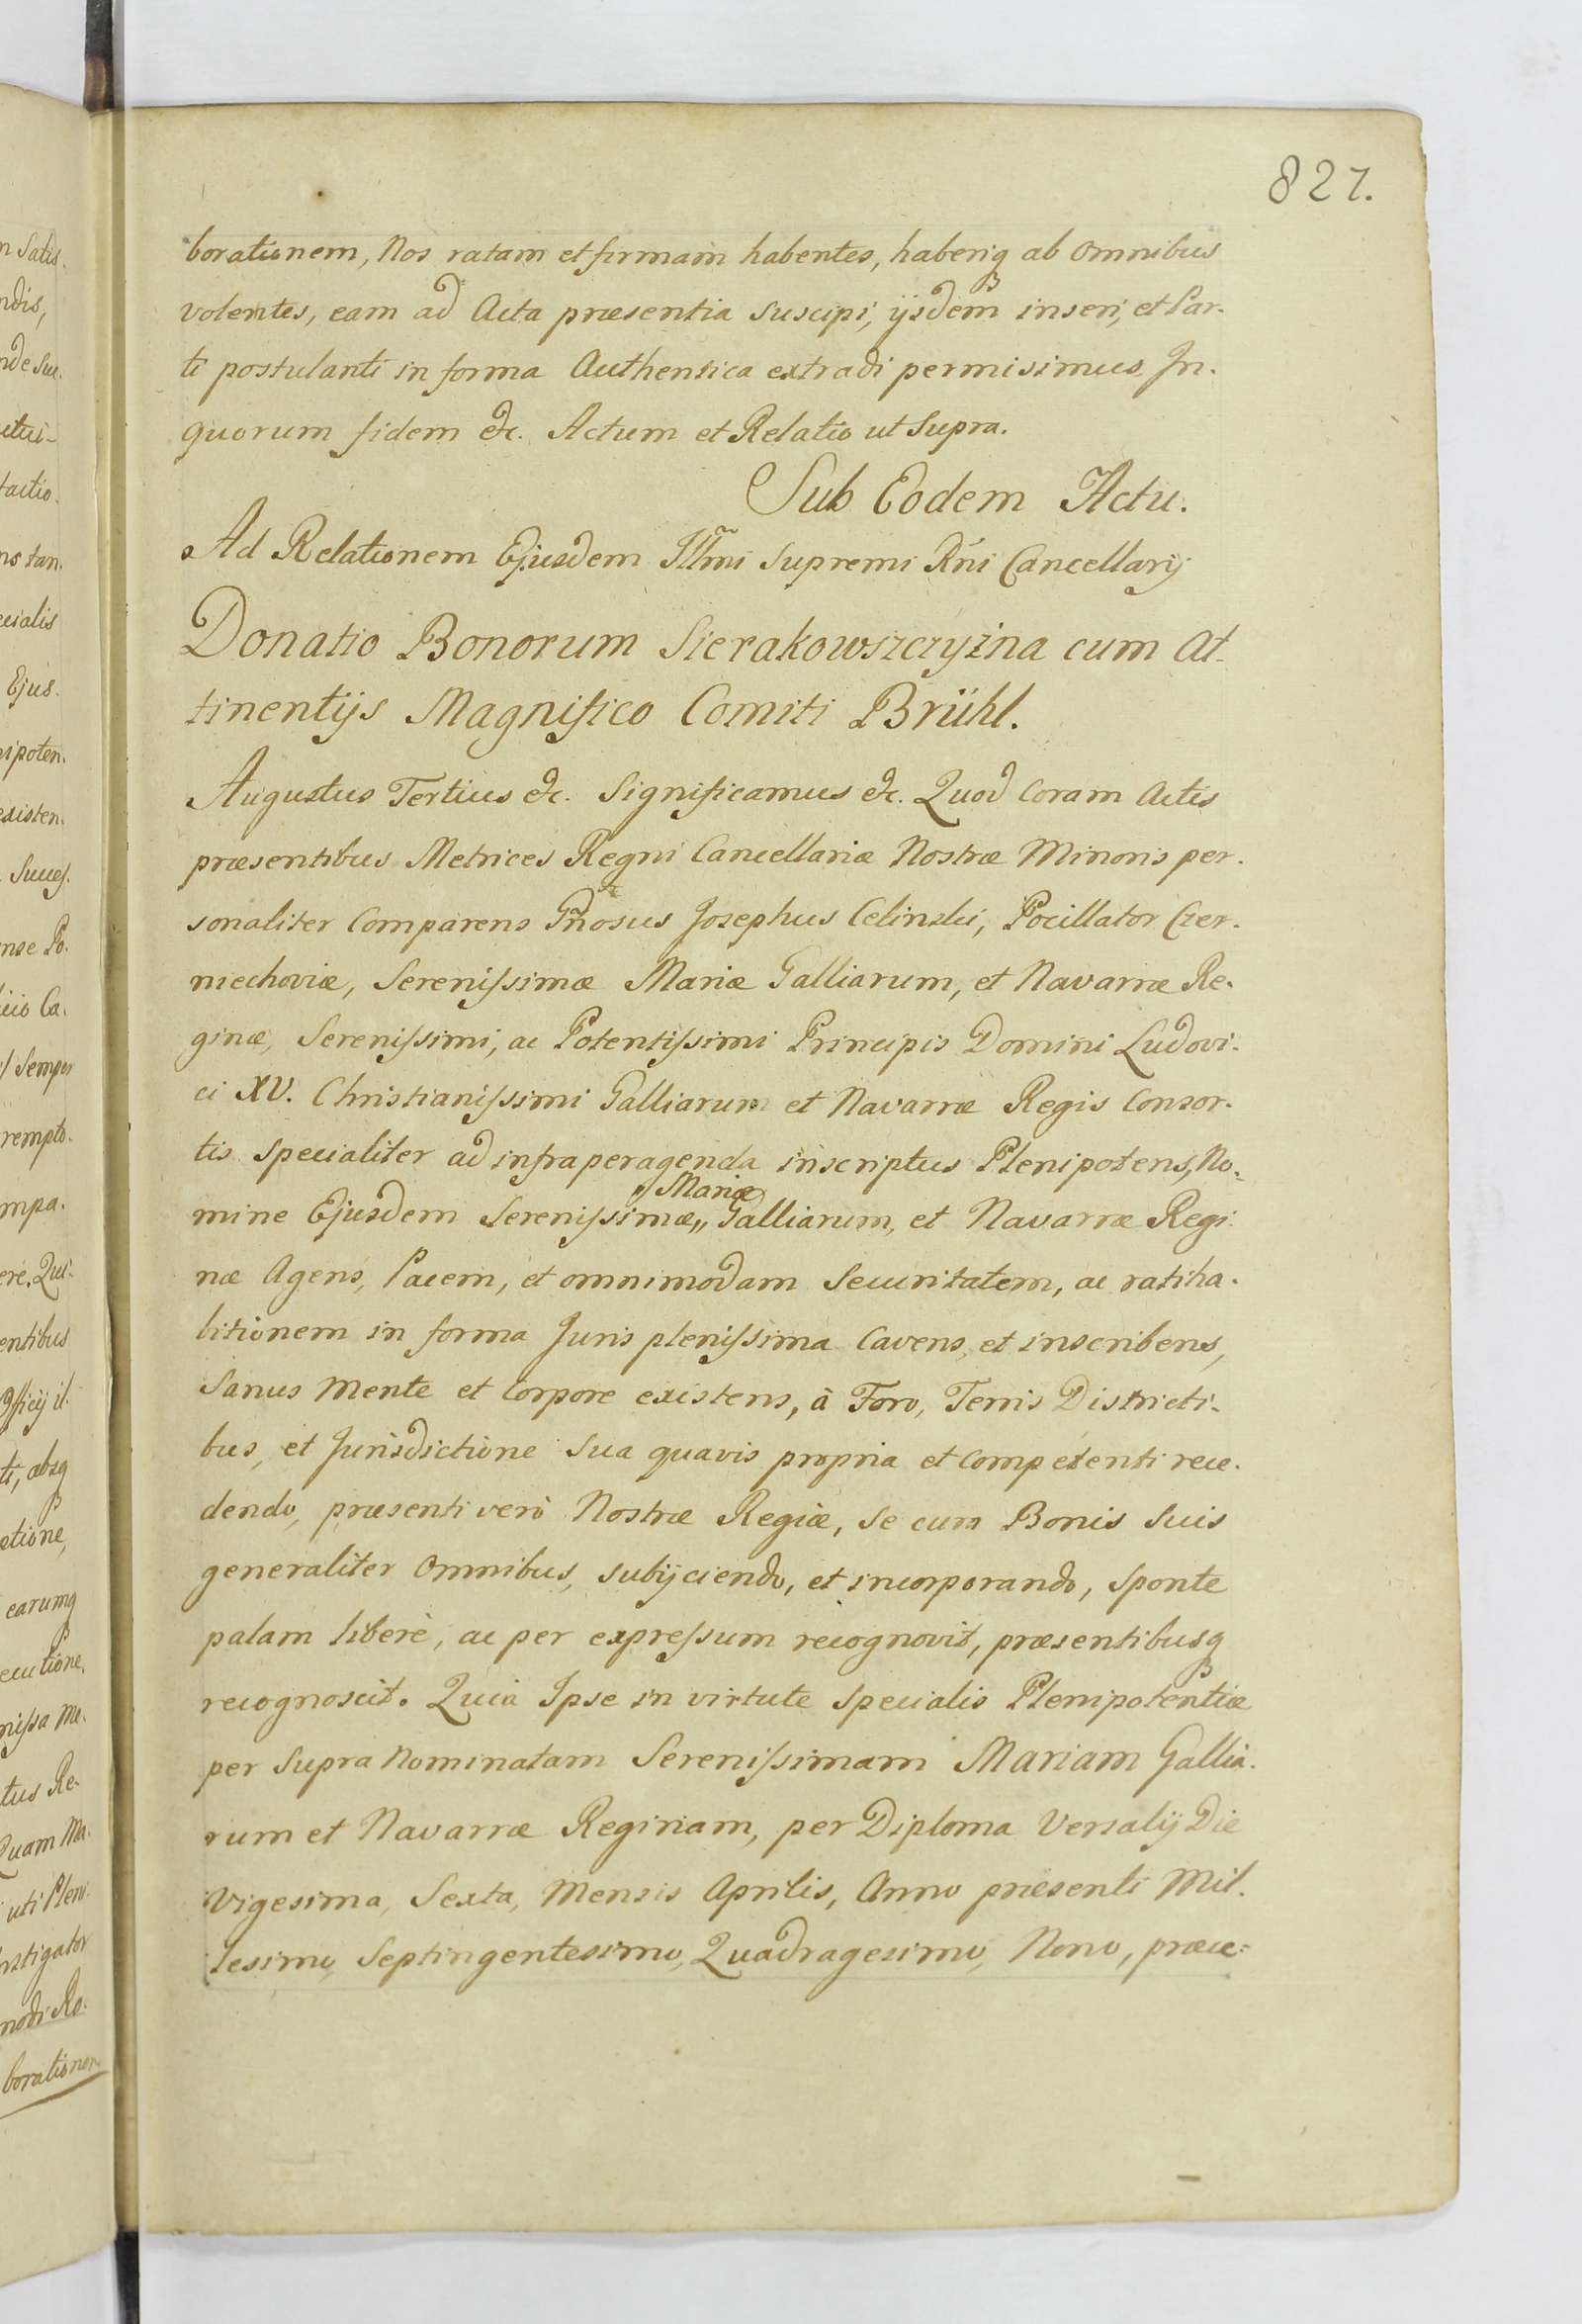 827.
borationem, Nos ratam et firmam habentes, haberiq ab Omnibus
volentes, eam ad Acta præsentia suscipi, ijsdem inseri, et Par-
ti postulanti in forma Authentica extradi permisimus. In-
quorum fidem &c. Actum et Relatio ut Supra.
Sub Eodem Actu.
Ad Relationem Ejusdem Illmi Supremi Rńi Cancellarij
Donatio Bonorum Sierakowszczyżna cum At-
tinentijs Magnifico Comiti Brühl.
Augustus Tertius &c. Significamus &c. Quod Coram Actis
præsentibus Metrices Regni Cancellariæ Nostræ Minoris per-
sonaliter Comparens Gñosus Josephus Celinski, Pocillator Czer-
niechoviæ, Serenissimæ Mariæ Galliarum, et Navarræ Re-
ginæ, Serenissimi, ac Potentissimi Principis Domini Ludovi-
ci XV. Christianissimi Galliarum et Navarræ Regis Consor-
tis specialiter ad infraperagenda inscriptus Plenipotens, No-
mine Ejusdem Serenissimæ,, "Mariæ Galliarum, et Navarræ Regi-
næ Agens, Pacem, et omnimodam Securitatem, ac ratiha-
bitionem in forma Juris plenissima Cavens, et inscribens,
Sanus Mente et Corpore existens, à Foro, Terris Districti-
bus, et Jurisdictione Sua quavis propria et Competenti rece-
dendo, præsenti verò Nostræ Regiæ, Se cum Bonis Suis
generaliter Omnibus, subijciendo, et incorporando, Sponte
palam liberè, ac per expressum recognovit, præsentibusq
recognoscit. Quia Ipse in virtute Specialis Plenipotentiæ
per Supra Nominatam Serenissimam Mariam Gallia-
rum et Navarræ Reginam, per Diploma Versalij Die
Vigesima, Sexta, Mensis Aprilis, Anno præsenti Mil-
lesimo, Septingentesimo, Quadragesimo, Nono, præce-